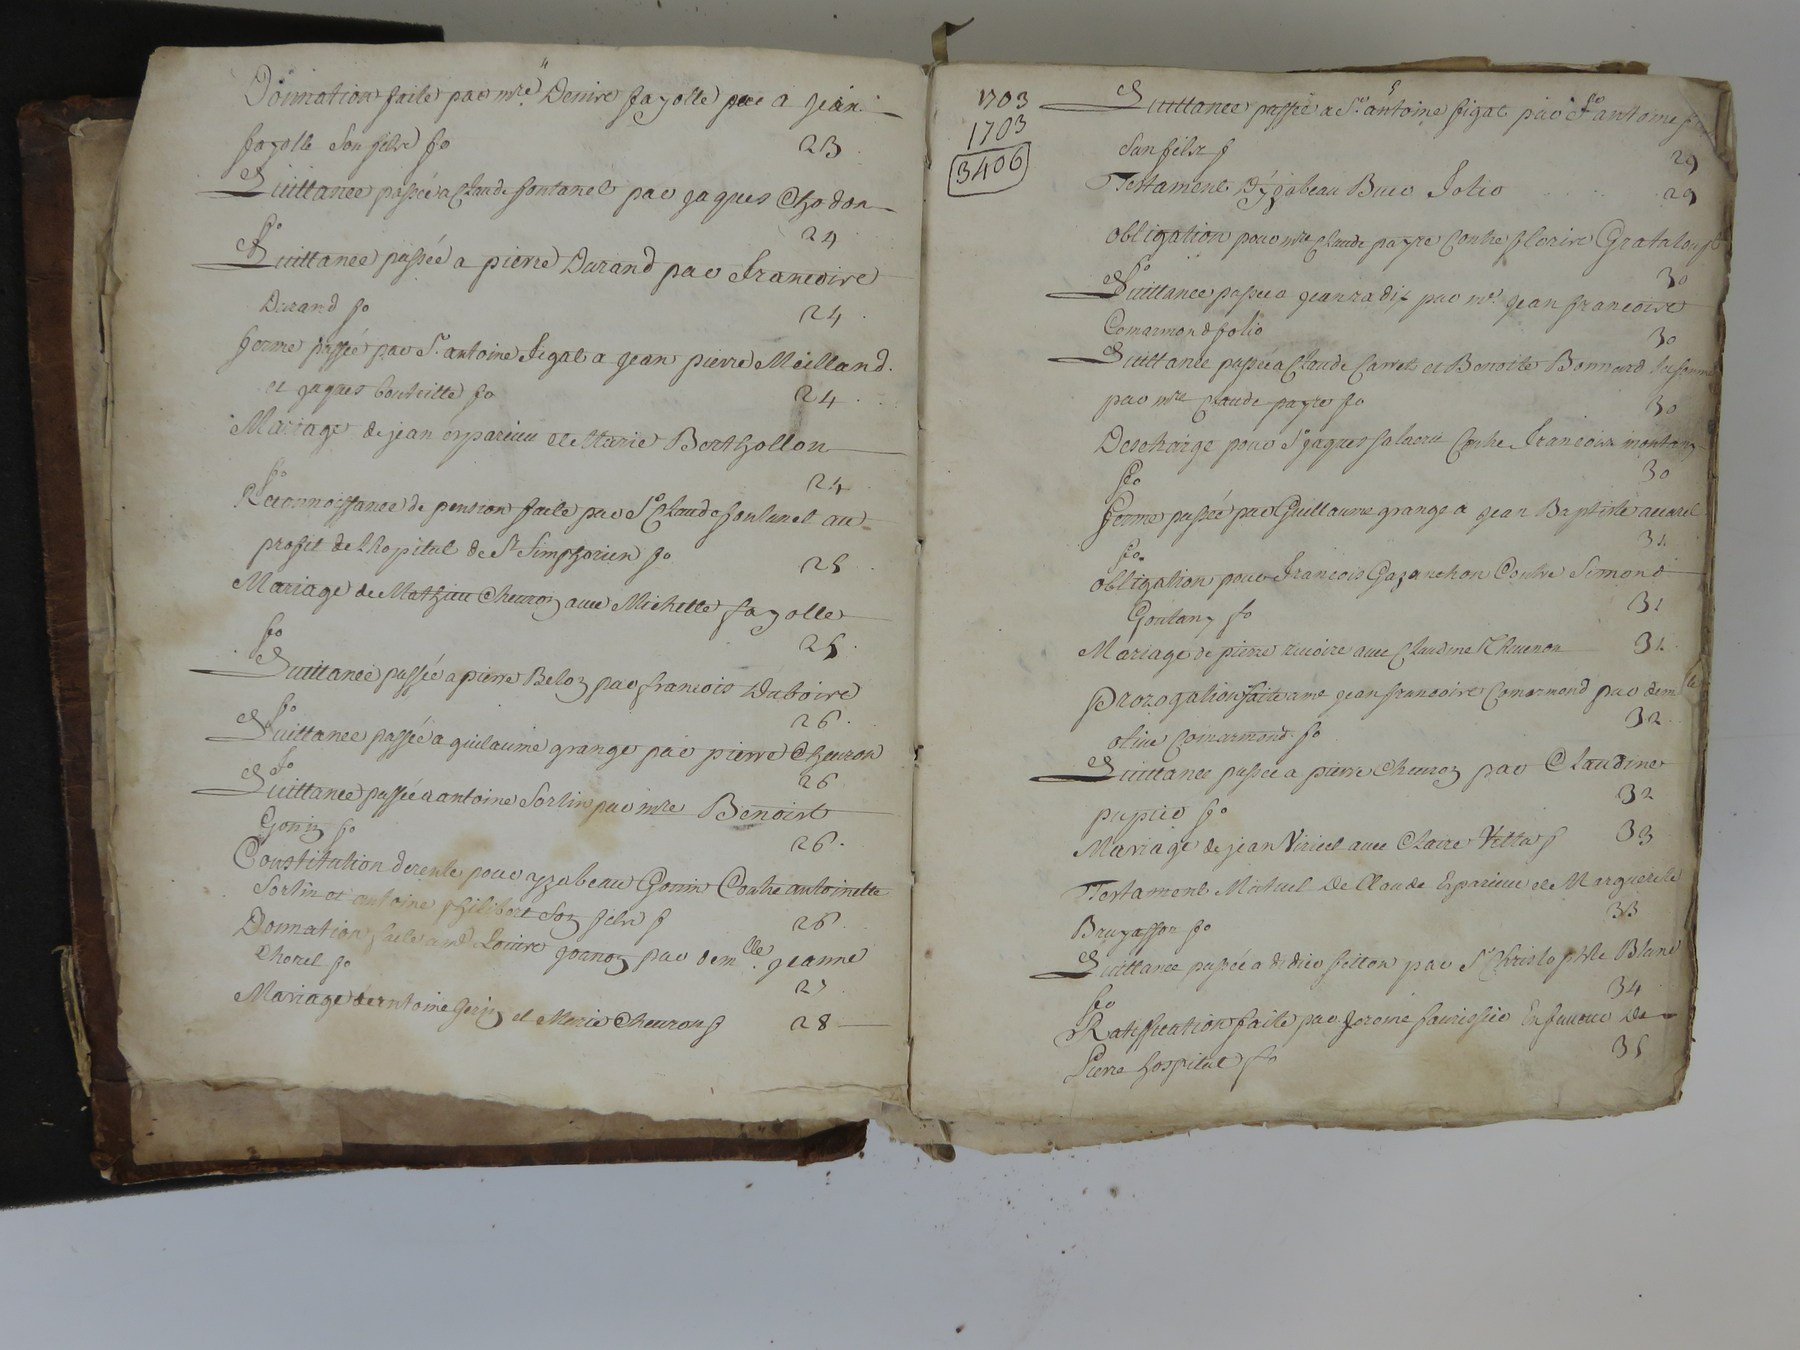 Donnation faite par mre Denire fayolle pre a jean
fayolle Son filz fo 23
Quittance passée a Claude fontanel par jaques Chodon
fo 24
Quittance passée a pierre Durand par francoise
Durand fo 24
ferme passée par Sr antoine figat a jean pierre Meilland
et jaques fo 24
Mariage de jean esparieu et Marie Berthollon
fo 24
Reconnoissance de pension faite par Sr Claude fontanel au
profit de lhopital de St Simphorien fo 25
Mariage de Mathieu Cheuron auec Michelle fayolle
fo 25
Quittance passée a pierre Beloz par francois Duboire
fo 26
Quittance passée a guilaume grange par pierre Cheuron
fo 26
Quittance passée a antoine Sorlin par mre Benoist
Gonin fo 26
Constitution de rente pour yzabeau Gonin Contre antoinette
Sorlin et antoine philibert Son filz f 26
Donnation faite a me Louise par demlle jeanne
thonel fo 27
Mariage de antoine et Marie Cheuron f 28
1703
1703
3406
Quittance passée a Sr antoine figat par Sr antoine
Son filz f 29
Testament d'yzabeau Buer folio 29
obligation pour mre Claude payre Contre florire Grataloup
fo 30
Quittance passée a jean radix par mr jean francoire
Comarmond folio 30
Quittance passée a Claude Carret et Benoite Bonnard
par mre Claude payre fo 30
Descharge pour Sr jaques Contre francois
fo 30
ferme passée par Guillaume grange a jean Baptiste
fo 31
obligation pour francois Gazanchon Contre Simond
Goutany fo 31
Mariage de pierre riuoire auec Claudine Theuenon 31
Prorogation faite a me jean francoire Comarmond par demlle
oliue Comarmond fo 32
Quittance passée a pierre Cheuron par Claudine
pupier fo 32
Mariage de jean Viricel auec Claire Villa f 33
Testament Mutuel de Claude Esparieu et Marguerite
Bruyasson fo 33
Quittance passée a didier fellon par Sr Christophle Blanc
fo 34
Ratiffication faite par Jerome En faueur De
Pierre hospital fo 35